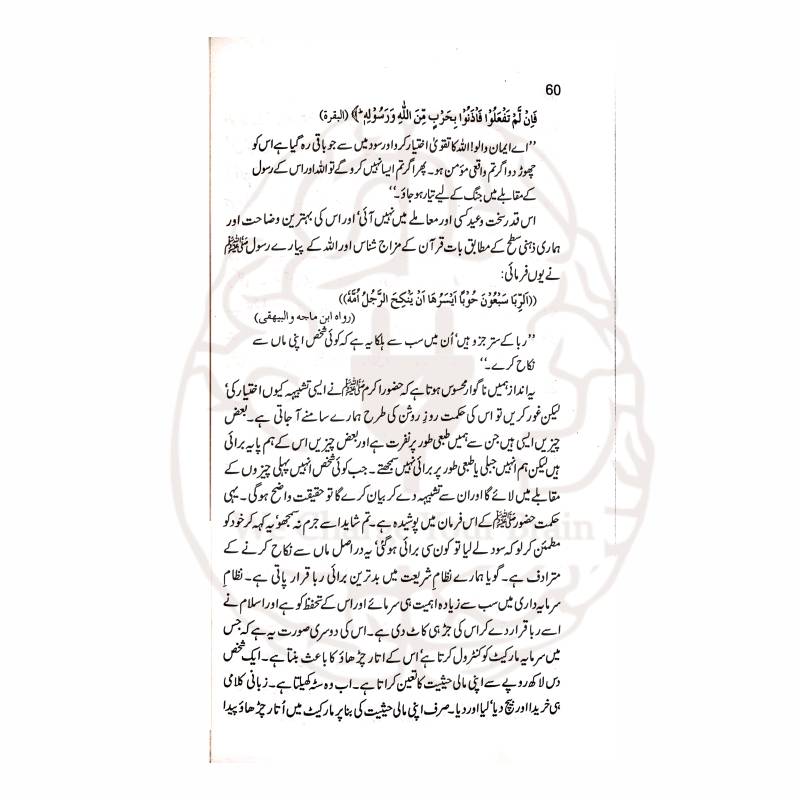 60
فَاِنْ لَّمْ تَفْعَلُوْا فَاْذَنُوْا بِحَرْبٍ مِّنَ اللّٰهِ وَرَسُوْلِهٖ ۚ﴾ (البقرة)
’’اے ایمان والو! اللہ کا تقویٰ اختیار کرو اور سود میں سے جو باقی رہ گیا ہے اس کو
چھوڑ دو اگر تم واقعی مؤمن ہو۔ پھر اگر تم ایسا نہیں کرو گے تو اللہ اور اس کے رسول
کے مقابلے میں جنگ کے لیے تیار ہو جاؤ۔‘‘
اس قدر سخت وعید کسی اور معاملے میں نہیں آئی‘ اور اس کی بہترین وضاحت اور
ہماری ذہنی سطح کے مطابق بات قرآن کے مزاج شناس اور اللہ کے پیارے رسول ﷺ
نے یوں فرمائی:
((اَلرِّبَا سَبْعُوْنَ حُوْبًا اَيْسَرُهَا اَنْ يَنْكِحَ الرَّجُلُ اُمَّهٗ))
(رواہ ابن ماجہ والبیھقی)
’’ربا کے ستر جزو ہیں‘ اُن میں سب سے ہلکا یہ ہے کہ کوئی شخص اپنی ماں سے
نکاح کرے۔‘‘
یہ انداز ہمیں ناگوار محسوس ہوتا ہے کہ حضور اکرم ﷺ نے ایسی تشبیہہ کیوں اختیار کی‘
لیکن غور کریں تو اس کی حکمت روزِ روشن کی طرح ہمارے سامنے آ جاتی ہے۔ بعض
چیزیں ایسی ہیں جن سے ہمیں طبعی طور پر نفرت ہے اور بعض چیزیں اس کے ہم پایہ برائی
ہیں لیکن ہم انہیں جبلی یا طبعی طور پر برائی نہیں سمجھتے۔ جب کوئی شخص انہیں پہلی چیزوں کے
مقابلے میں لائے گا اور ان سے تشبیہہ دے کر بیان کرے گا تو حقیقت واضح ہوگی۔ یہی
حکمت حضور ﷺ کے اس فرمان میں پوشیدہ ہے۔ تم شاید اسے جرم نہ سمجھو‘ یہ کہہ کر خود کو
مطمئن کر لو کہ سود لے لیا تو کون سی برائی ہوگئی‘ یہ دراصل ماں سے نکاح کرنے کے
مترادف ہے۔ گویا ہمارے نظامِ شریعت میں بدترین برائی ربا قرار پاتی ہے۔ نظامِ
سرمایہ داری میں سب سے زیادہ اہمیت ہی سرمائے اور اس کے تحفظ کو ہے اور اسلام نے
اسے ربا قرار دے کر اس کی جڑ ہی کاٹ دی ہے۔ اس کی دوسری صورت یہ ہے کہ جس
میں سرمایہ مارکیٹ کو کنٹرول کرتا ہے‘ اس کے اتار چڑھاؤ کا باعث بنتا ہے۔ ایک شخص
دس لاکھ روپے سے اپنی مالی حیثیت کا تعین کراتا ہے۔ اب وہ سٹہ کھیلتا ہے۔ زبانی کلامی
ہی خریدا اور بیچ دیا‘ لیا اور دیا۔ صرف اپنی مالی حیثیت کی بنا پر مارکیٹ میں اُتار چڑھاؤ پیدا